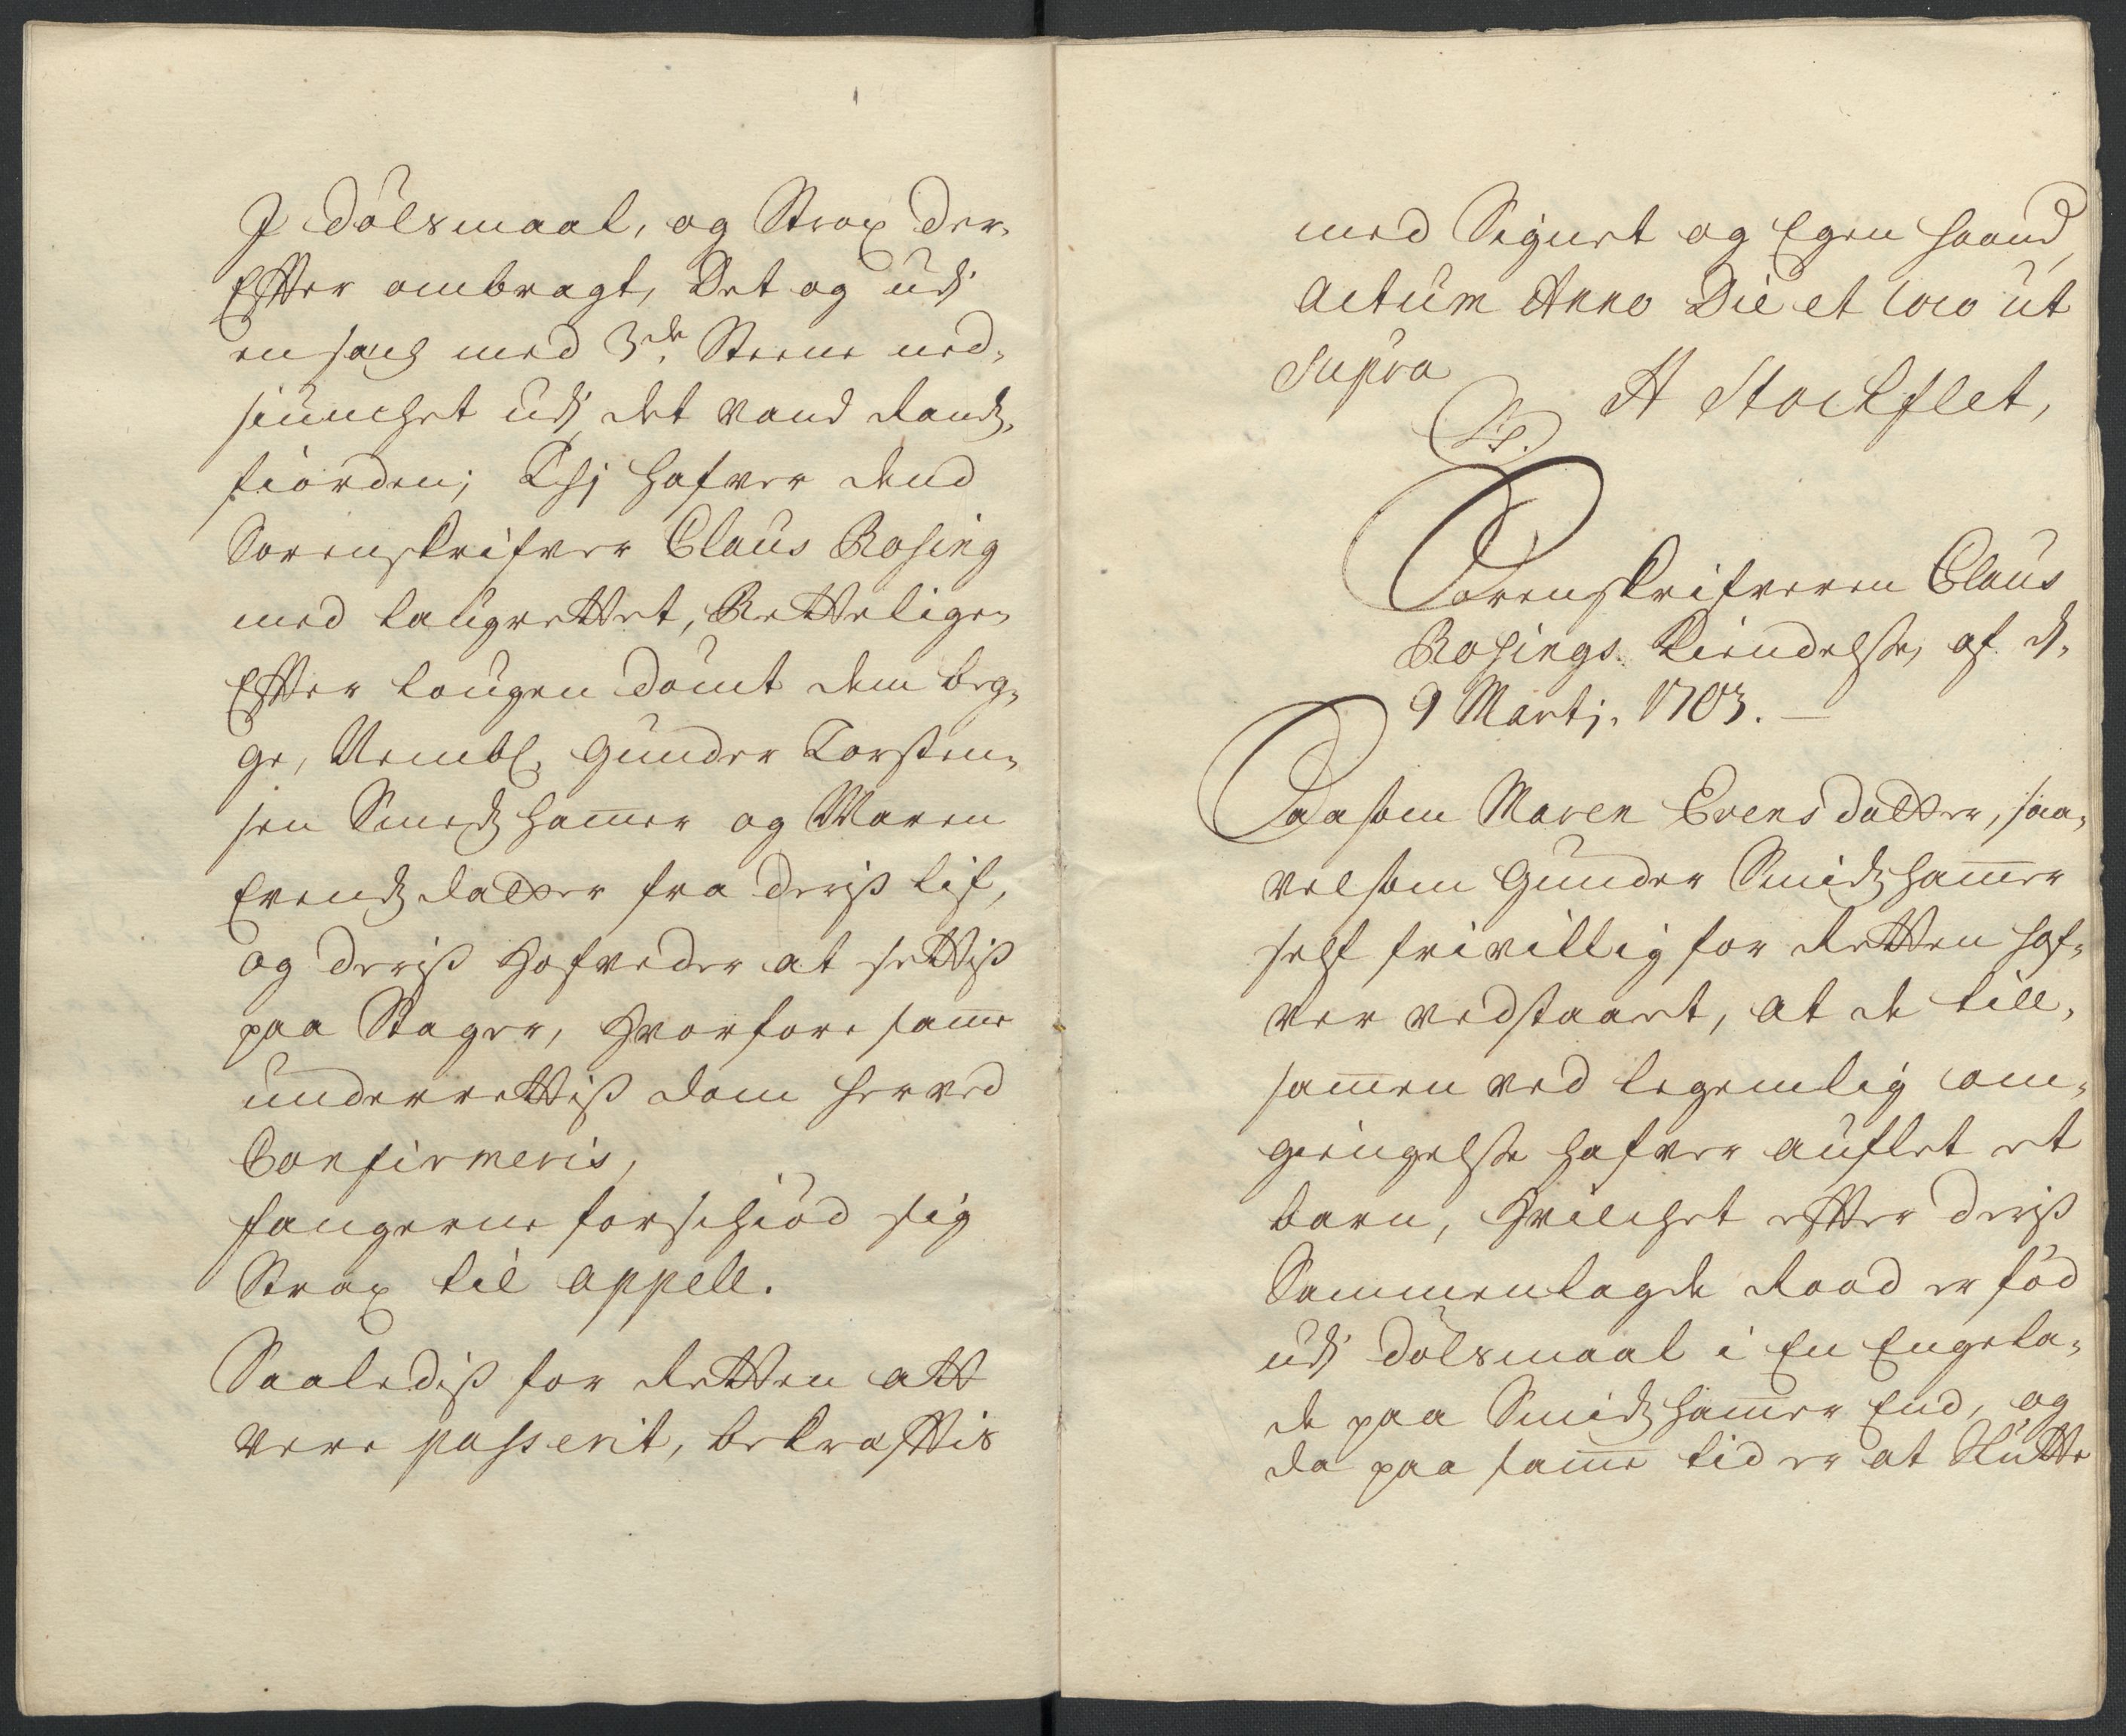 J dölsmaal, og Strax der,
Effter ombragt, Det og udj
en sech med 3de Steene ned,
siunchet udj det vand Rands,
fiorden; Thj hafver dend
Sorenskrifver Claus Rosing
med laugrettet, Rettelige,
Effter lougen dömt dem beg,
ge, Nembl. Gunder Torsten,
sen Smedshamer og Maren
Evendsdatter fra deriss lif,
og deriss Hofveder at settiss
paa Stager, Hvorfore samme
underrettiss dom herved
Confirmeris,
fangerne forschiöd sig
Strax til appell.
Saalediss for Retten att
vere passerit, bekrefftis
med Signet og Egen haand,
Actum Anno Die et loco ut
Supra
L.S.
H Stockflet,
Sorenskrifveren Claus
Rosings. Kiendelsse, af d.
9 Martj. 1703.
Saasom Maren Evens datter, saa,
velsom Gunder Smidshamer
self frivillig for Retten haf,
ver vedstaaet, at de till,
samen ved legemlig om,
giengelsse hafver auflet et
barn, Hvilchet effter deriss
Sammenlagde Raad er föd
udj dölsmaal i En Engela,
de paa Smidshamer End, og
da paa same tid er at Slutte